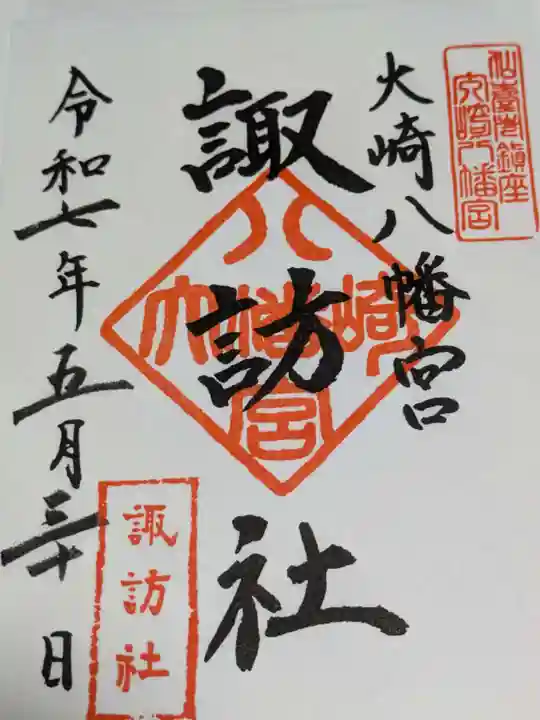 仙臺總鎮座
大崎八幡宮
大崎八幡宮
諏訪社
大崎八幡宮
諏訪社
令和七年五月三十日